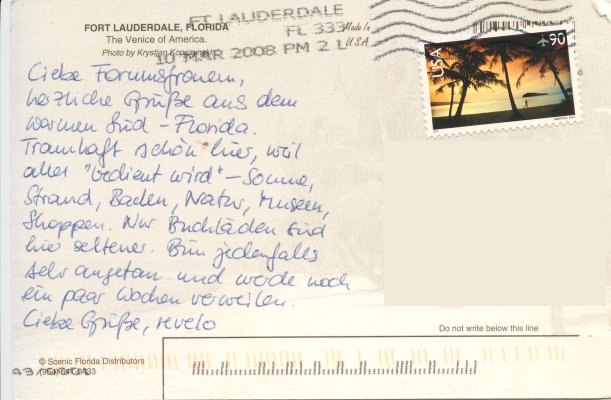 FORT LAUDERDALE, FLORIDA
The Venice of America.
Photo by Krystian
Made In
U.S.A.
FT LAUDERDALE
FL 333
10 MAR 2008 PM 2 L
USA
90
Liebe Forumsfrauen,
herzliche Grüße aus dem
warmen Süd-Florida.
Traumhaft schön hier, weil
alles "bedient wird" - Sonne,
Strand, Baden, Natur, Museen,
Shoppen. Nur Buchläden sind
hier seltener. Bin jedenfalls
sehr angetan und werde noch
ein paar Wochen verweilen.
Liebe Grüße, revelo
Do not write below this line
© Scenic Florida Distributors